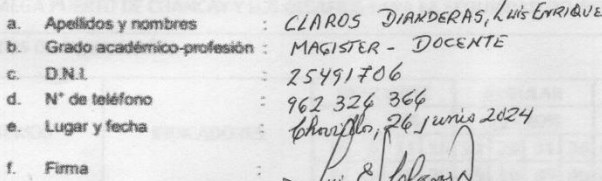 a. Apellidos y nombres : CLAROS DIANDERAS, Luis ENRIQUE
b. Grado académico-profesión : MAGISTER - DOCENTE
c. D.N.I. : 25491706
d. N° de teléfono : 962 324 366
e. Lugar y fecha : 26 junio 2024
f. Firma :